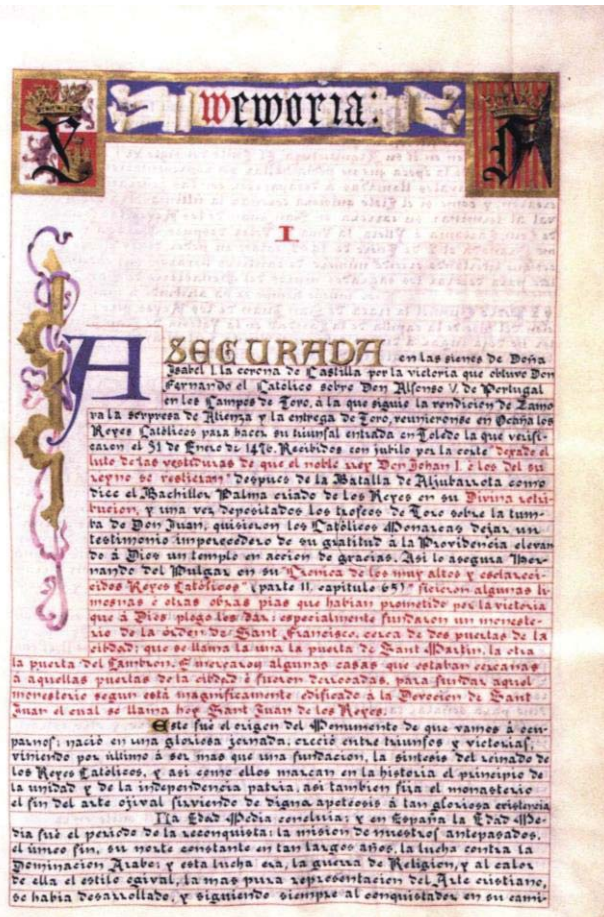 Y
Memoria:
F
I
ASEGURADA en las sienes de Doña
Isabel I. la corona de Castilla por la victoria que obtuvo Don
Fernando el Católico sobre Don Alfonso V. de Portugal
en los Campos de Toro, à la que siguio la rendicion de Zamo
ra la sorpresa de Atienza y la entrega de Toro, reunieronse en Ocaña los
Reyes Católicos para hacer su triunfal entrada en Toledo la que verifi-
caron el 31 de Enero de 147 Recibidos con jubilo por la corte "dexado el
luto de las vestiduras de que el noble rrey Don Johan I. e los del su
reyno se vestieran" despues de la Batalla de Aljubarrota como
dice el Bachiller Palma criado de los Reyes en su Divina retri-
bucion, y una vez depositados los trofeos de Toro sobre la tum-
ba de Don Juan, quisieron los Católicos Monarcas dejar un
testimonio imperecedero de su gratitud à la Providencia elevan
do à Dios un templo en accion de gracias. Asi lo asegura Her-
nando del Pulgar en su "Cronica de los muy altos y esclareci-
cidos Reyes Catolicos" (parte II, capitulo 65) "ficieron algunas li-
mosnas é otras obras pias que habian prometido por la victoria
que à Dios plogo les dar: especialmente fundaron un moneste-
rio de la órden de Sant Francisco, cerca de dos puertas de la
cibdad: que se llama la una la puerta de Sant Martin, la otra
la puerta del Cambron. E mercaron algunas casas que estaban cercanas
à aquellas puertas de la cibdad é fueron derrocadas, para fundar aquel
monesterio segun está magnificamente edificado à la Devocion de Sant
Juan el cual se llama hoy Sant Juan de los Reyes.
Este fué el origen del Monumento de que vamos à ocu-
parnos; nació en una gloriosa jornada; creció entre triunfos y victorias,
viniendo por último à ser mas que una fundacion, la sintesis del reinado de
los Reyes Católicos, y asi como ellos marcan en la historia el principio de
la unidad y de la independencia patria, asi tambien fija el monasterio
el fin del arte ojival sirviendo de digna apoteósis à tan gloriosa existencia
La Edad Media concluia; y en España la Edad Me-
dia fué el periodo de la reconquista: la mision de nuestros antepasados,
el único fin, su norte constante en tan largos años, la lucha contra la
Dominacion Arabe; y esta lucha era, la guerra de Religion, y al calor
de ella el estilo ogival, la mas pura representacion del Arte cristiano,
se habia desarrollado, y siguiendo siempre al conquistador en su cami-